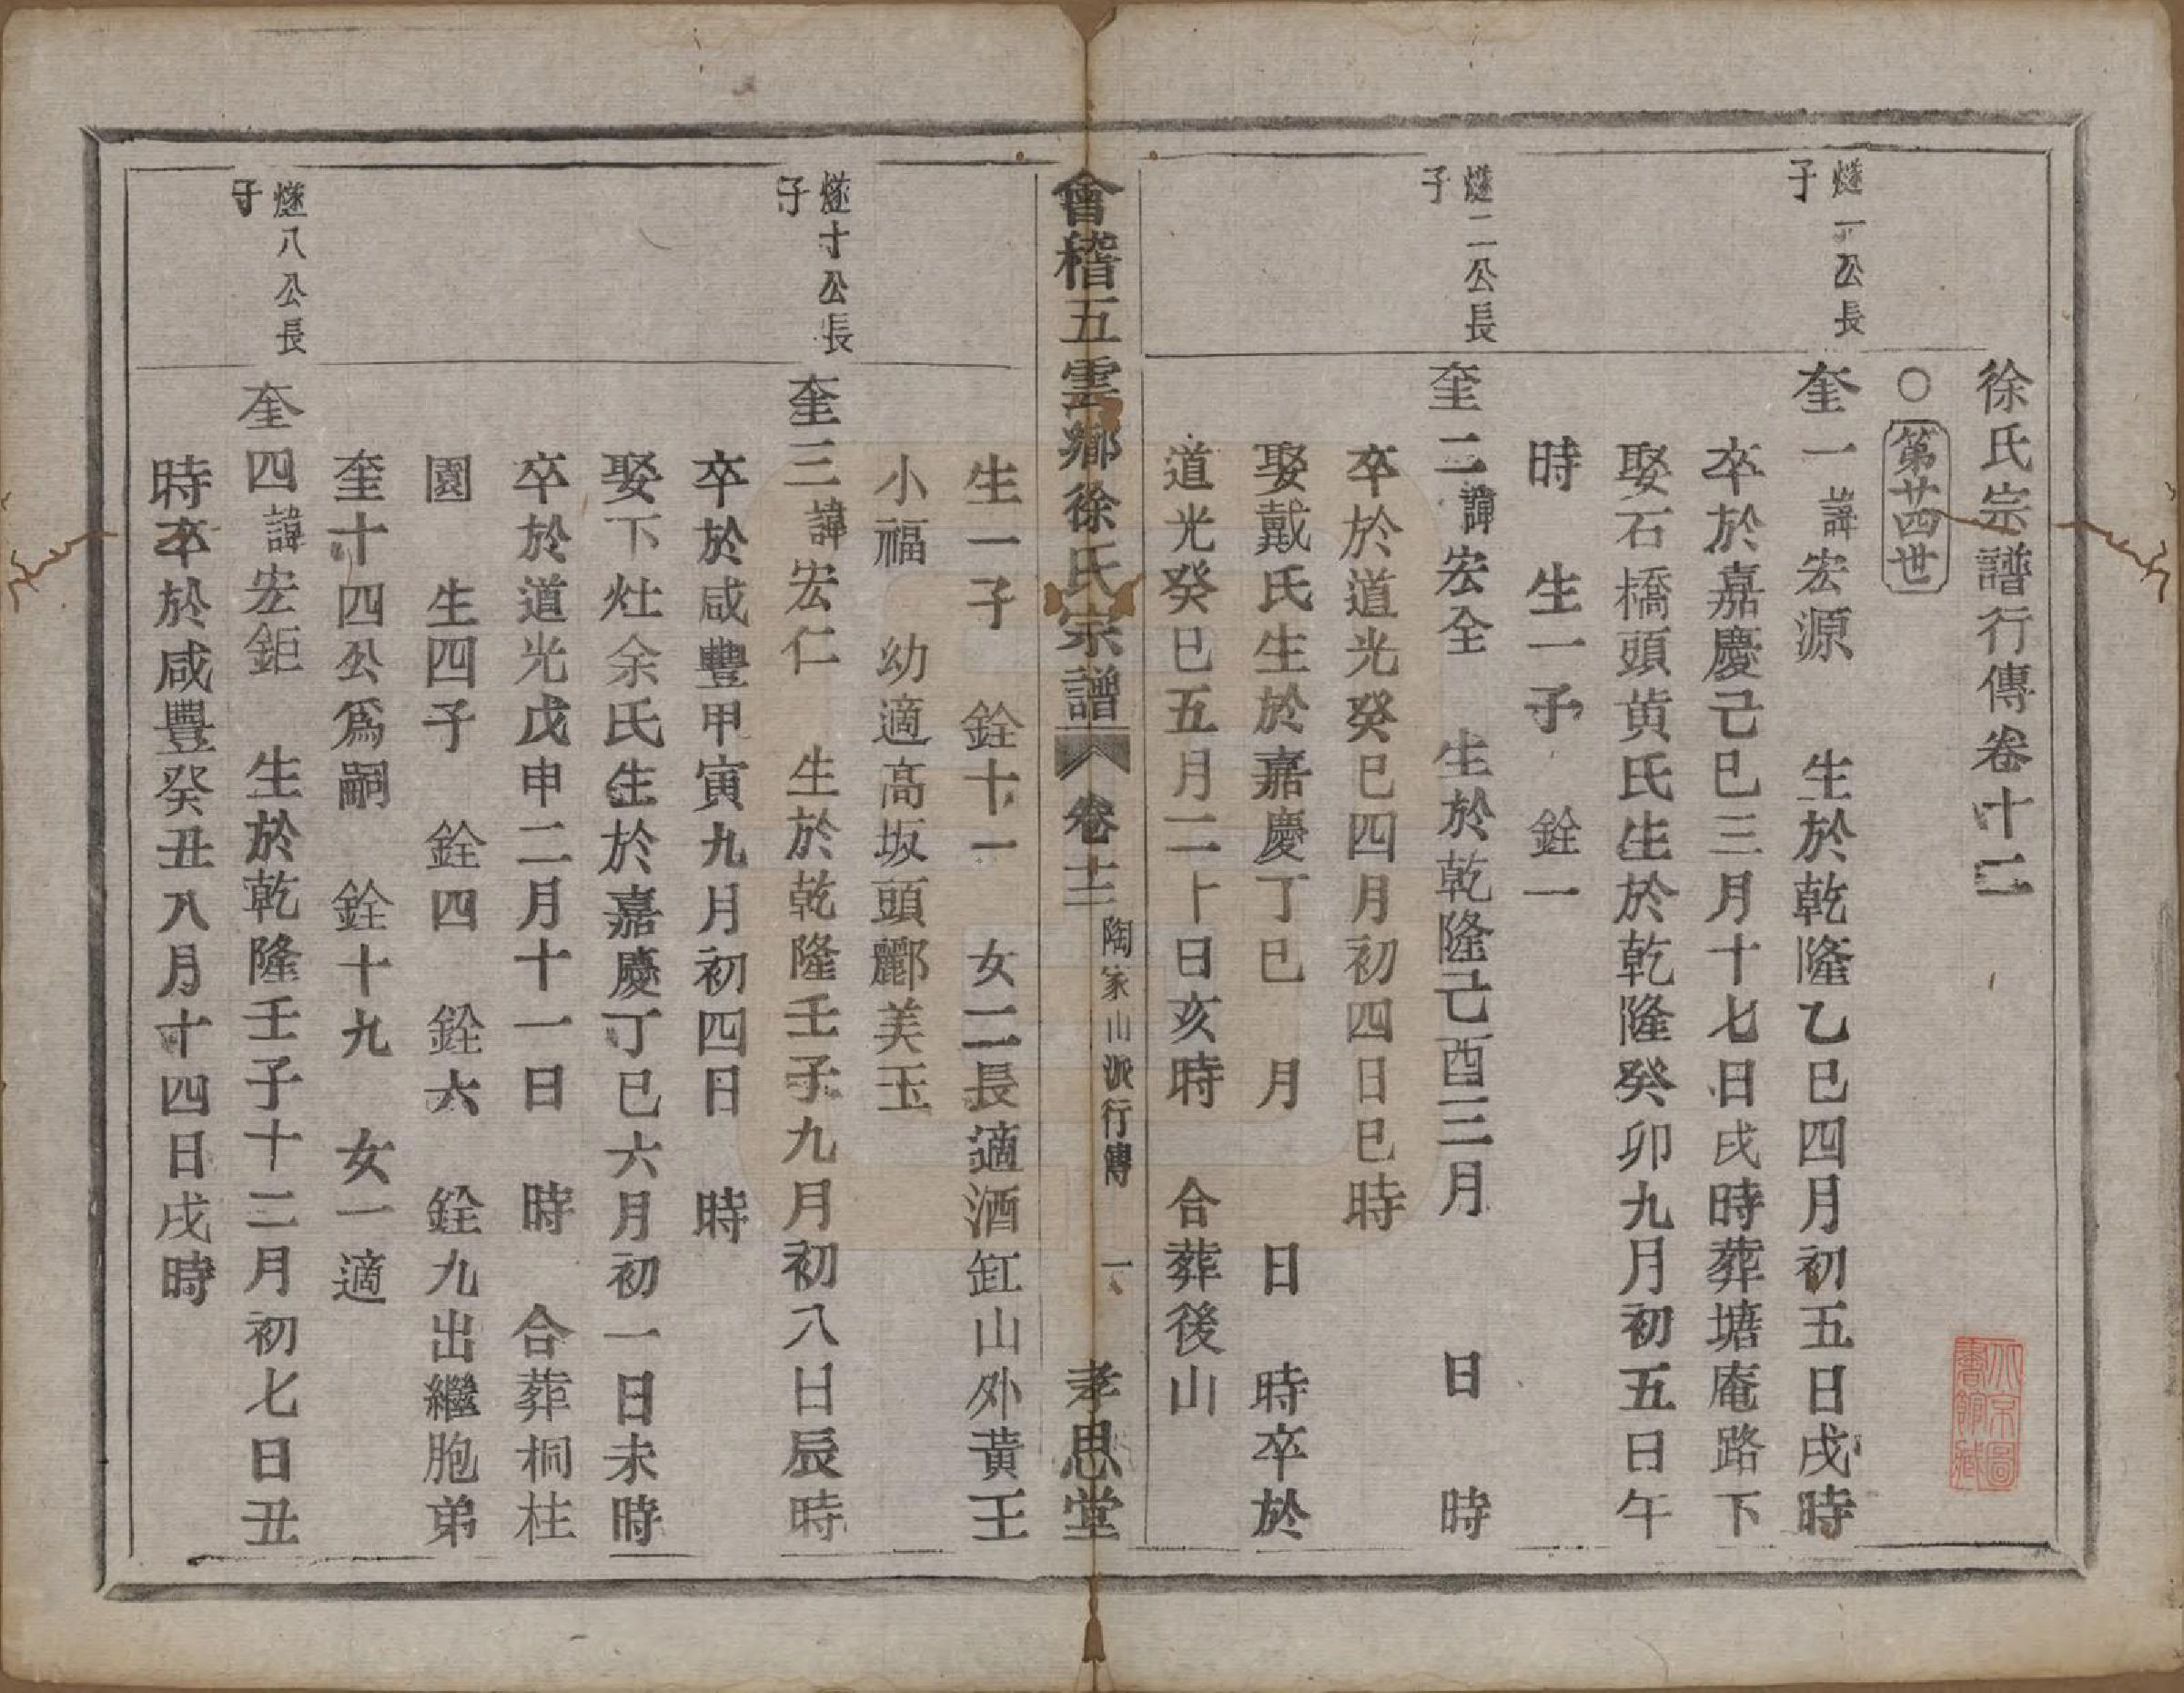 徐氏宗譜行傳卷十二
○第廿四世
燧一公長
子
奎一諱宏源　生於乾隆乙巳四月初五日戌時
卒於嘉慶己巳三月十七日戌時葬塘庵路下
娶石橋頭黄氏生於乾隆癸卯九月初五日午
時　生一子　銓一
燧二公長
子
奎二諱宏全　生於乾隆己酉三月　日　時
卒於道光癸巳四月初四日巳時
娶戴氏生於嘉慶丁巳　月　日　時卒於
道光癸巳五月二十日亥時　合葬後山
會稽五雲鄉徐氏宗譜　卷十二　陶家山派行傳　一　孝思堂
生一子　銓十一　女二長適酒缸山外黃王
小福　幼適高坂頭酈美玉
燧十公長
子
奎三諱宏仁　生於乾隆壬子九月初八日辰時
卒於咸豐甲寅九月初四日　時
娶下灶余氏生於嘉慶丁巳六月初一日未時
卒於道光戊申二月十一日　時　合葬桐柱
園　生四子　銓四　銓六　銓九出繼胞弟
奎十四公爲嗣　銓十九　女一適
燧八公長
子
奎四諱宏鉅　生於乾隆壬子十二月初七日丑
時卒於咸豐癸丑八月十四日戌時